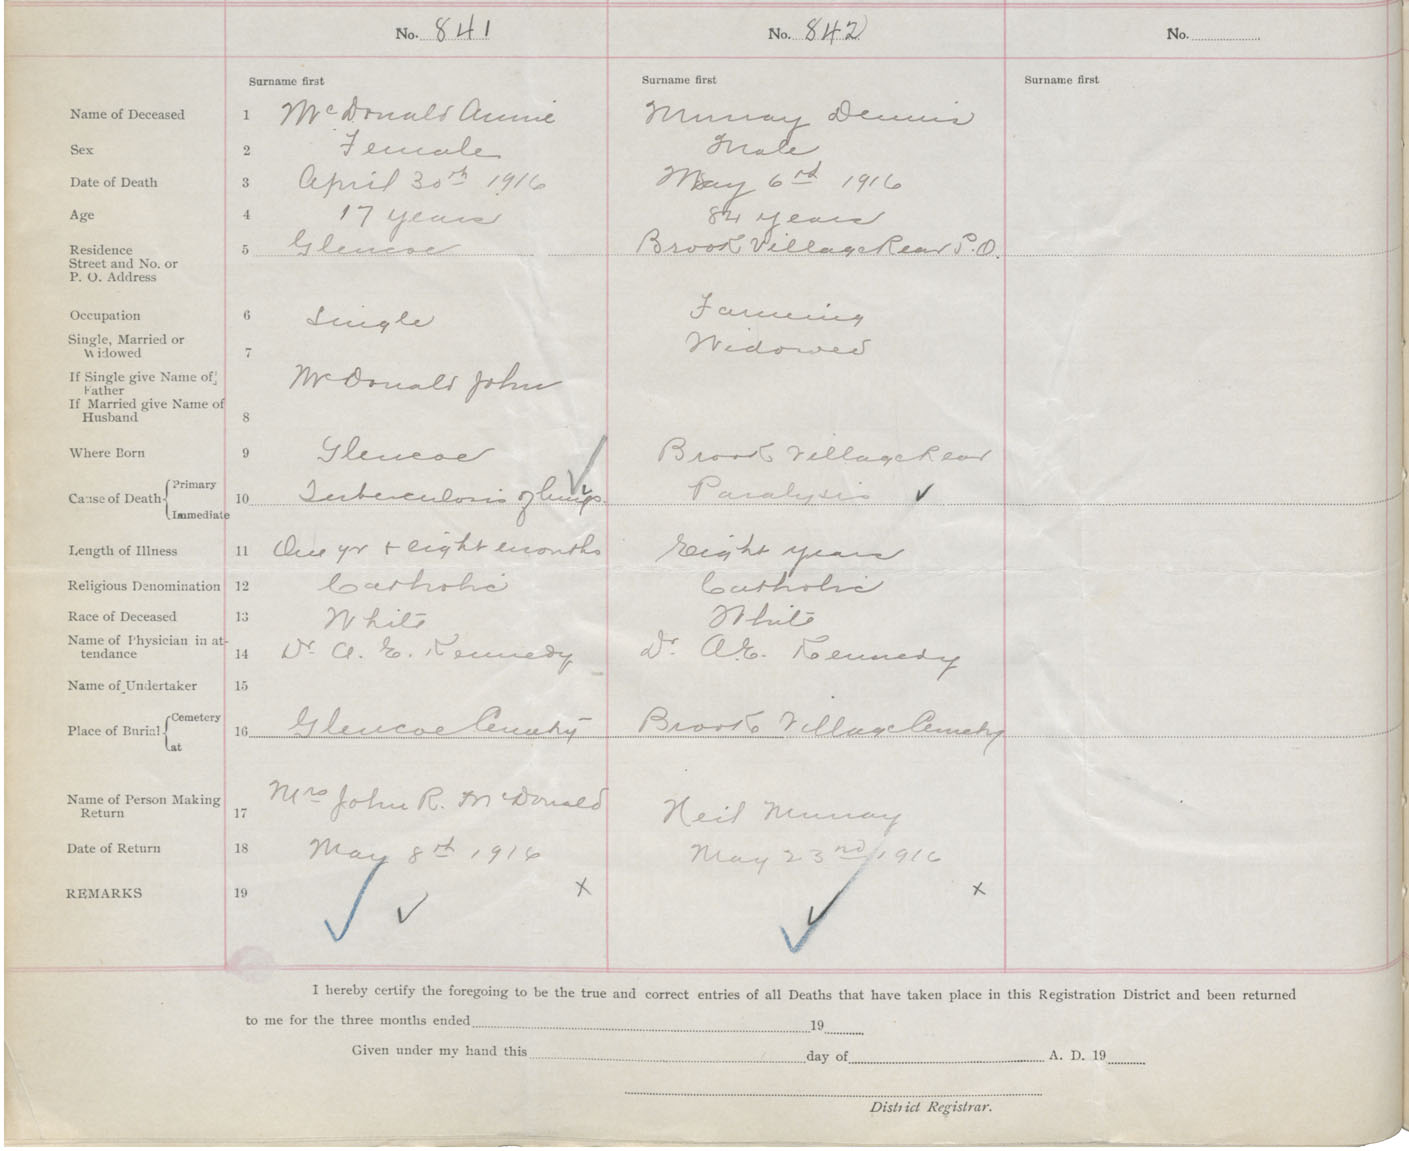 No. 841 No. 842 No.
Surname first Surname first Surname first
Name of Deceased 1 McDonald Annie Murray Dennis
Sex 2 Female Male
Date of Death 3 April 30th 1916 May 6rd 1916
Age 4 17 years 84 years
Residence 5 Glencoe Brook Village Rear P.O.
Street and No. or
P. O. Address
Occupation 6 Single Farming
Single, Married or
Widowed 7 Widowed
If Single give Name of McDonald John
Father
If Married give Name of
Husband 8
Where Born 9 Glencoe Brook Village Rear
Cause of Death Primary 10 Tuberculosis of lungs. Paralysis
Immediate
Length of Illness 11 One yr + eight months Eight years
Religious Denomination 12 Catholic Catholic
Race of Deceased 13 White White
Name of Physician in at-
tendance 14 Dr. A. E. Kennedy Dr. A.E. Kennedy
Name of Undertaker 15
Place of Burial Cemetery 16 Glencoe Cemetry Brook Village Cemetry
at
Name of Person Making
Return 17 Mrs John R. McDonald Neil Murray
Date of Return 18 May 8th 1916 May 23nd 1916
REMARKS 19 x x
I hereby certify the foregoing to be the true and correct entries of all Deaths that have taken place in this Registration District and been returned
to me for the three months ended 19
Given under my hand this day of A. D. 19
District Registrar.